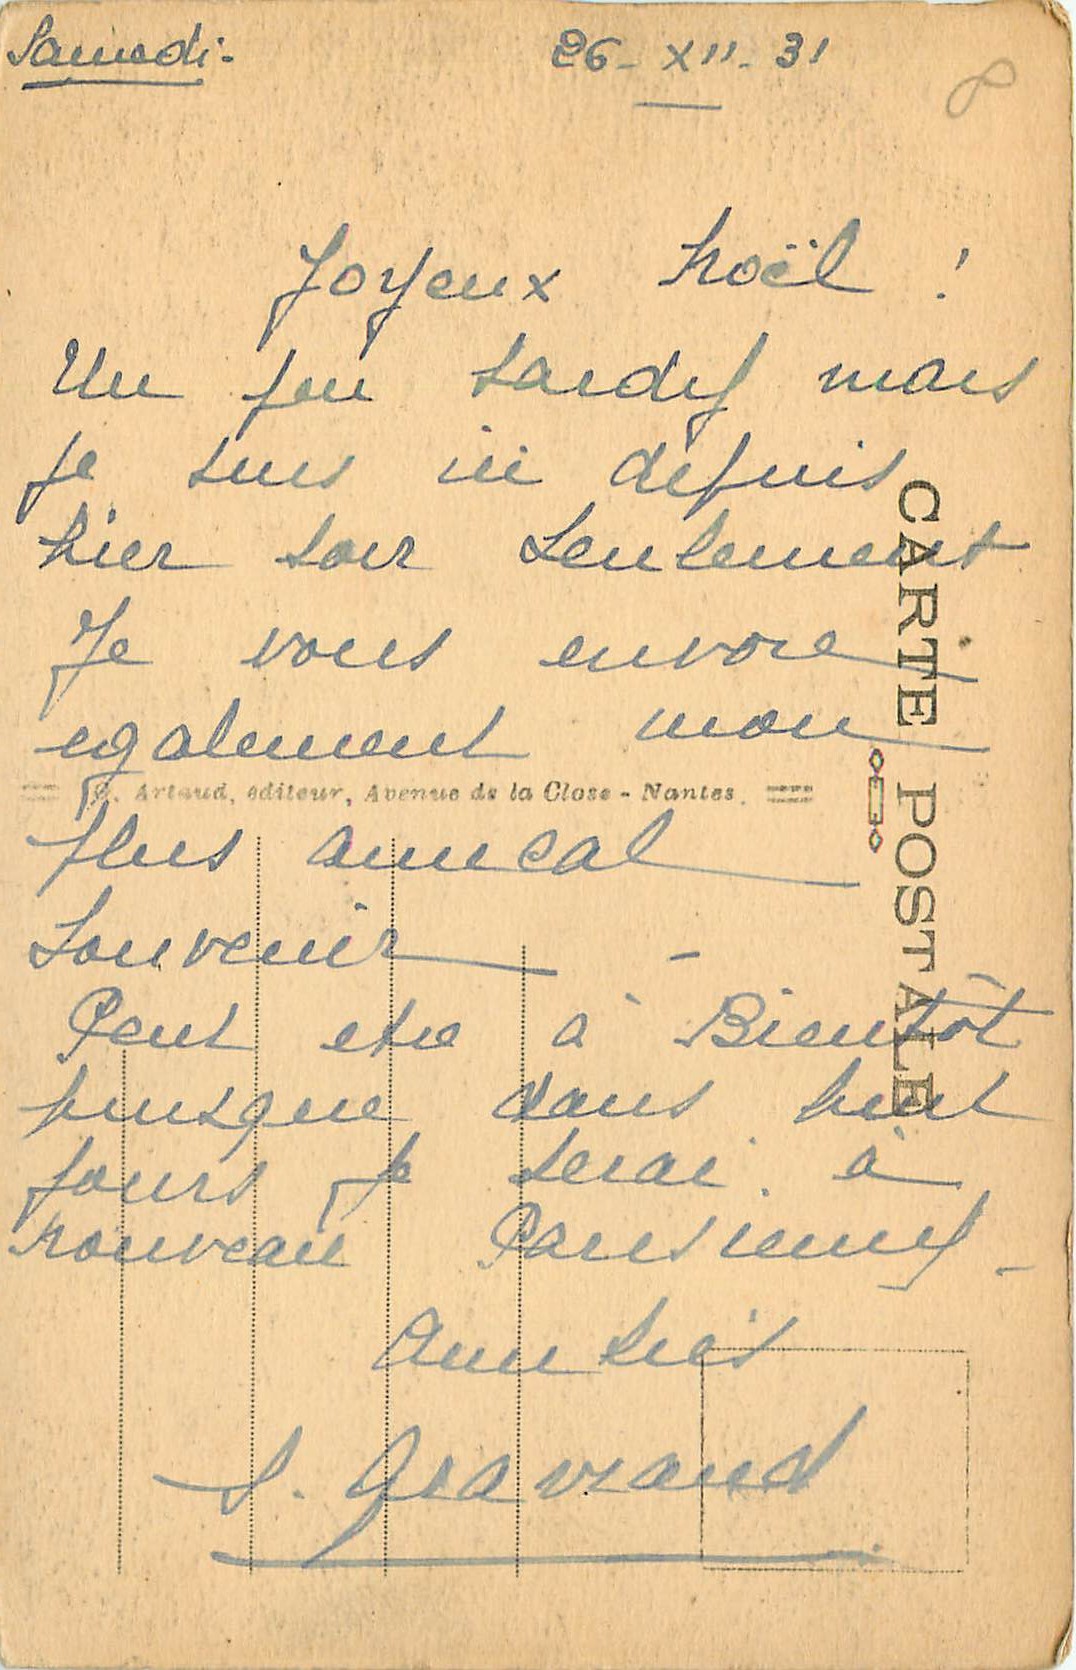 Samedi.
26 - XII - 31
8
Joyeux Noël !
Un peu tardif mais
je suis ici depuis
hier soir seulement
Je vous envoie
egalement mon
G. Artaud, éditeur, Avenue de la Close - Nantes.
plus amical
souvenir -
Peut etre à Bientôt
puisque dans huit
jours je serai à
nouveau Parisienne -
Amitiés
Gravraud
CARTE POSTALE